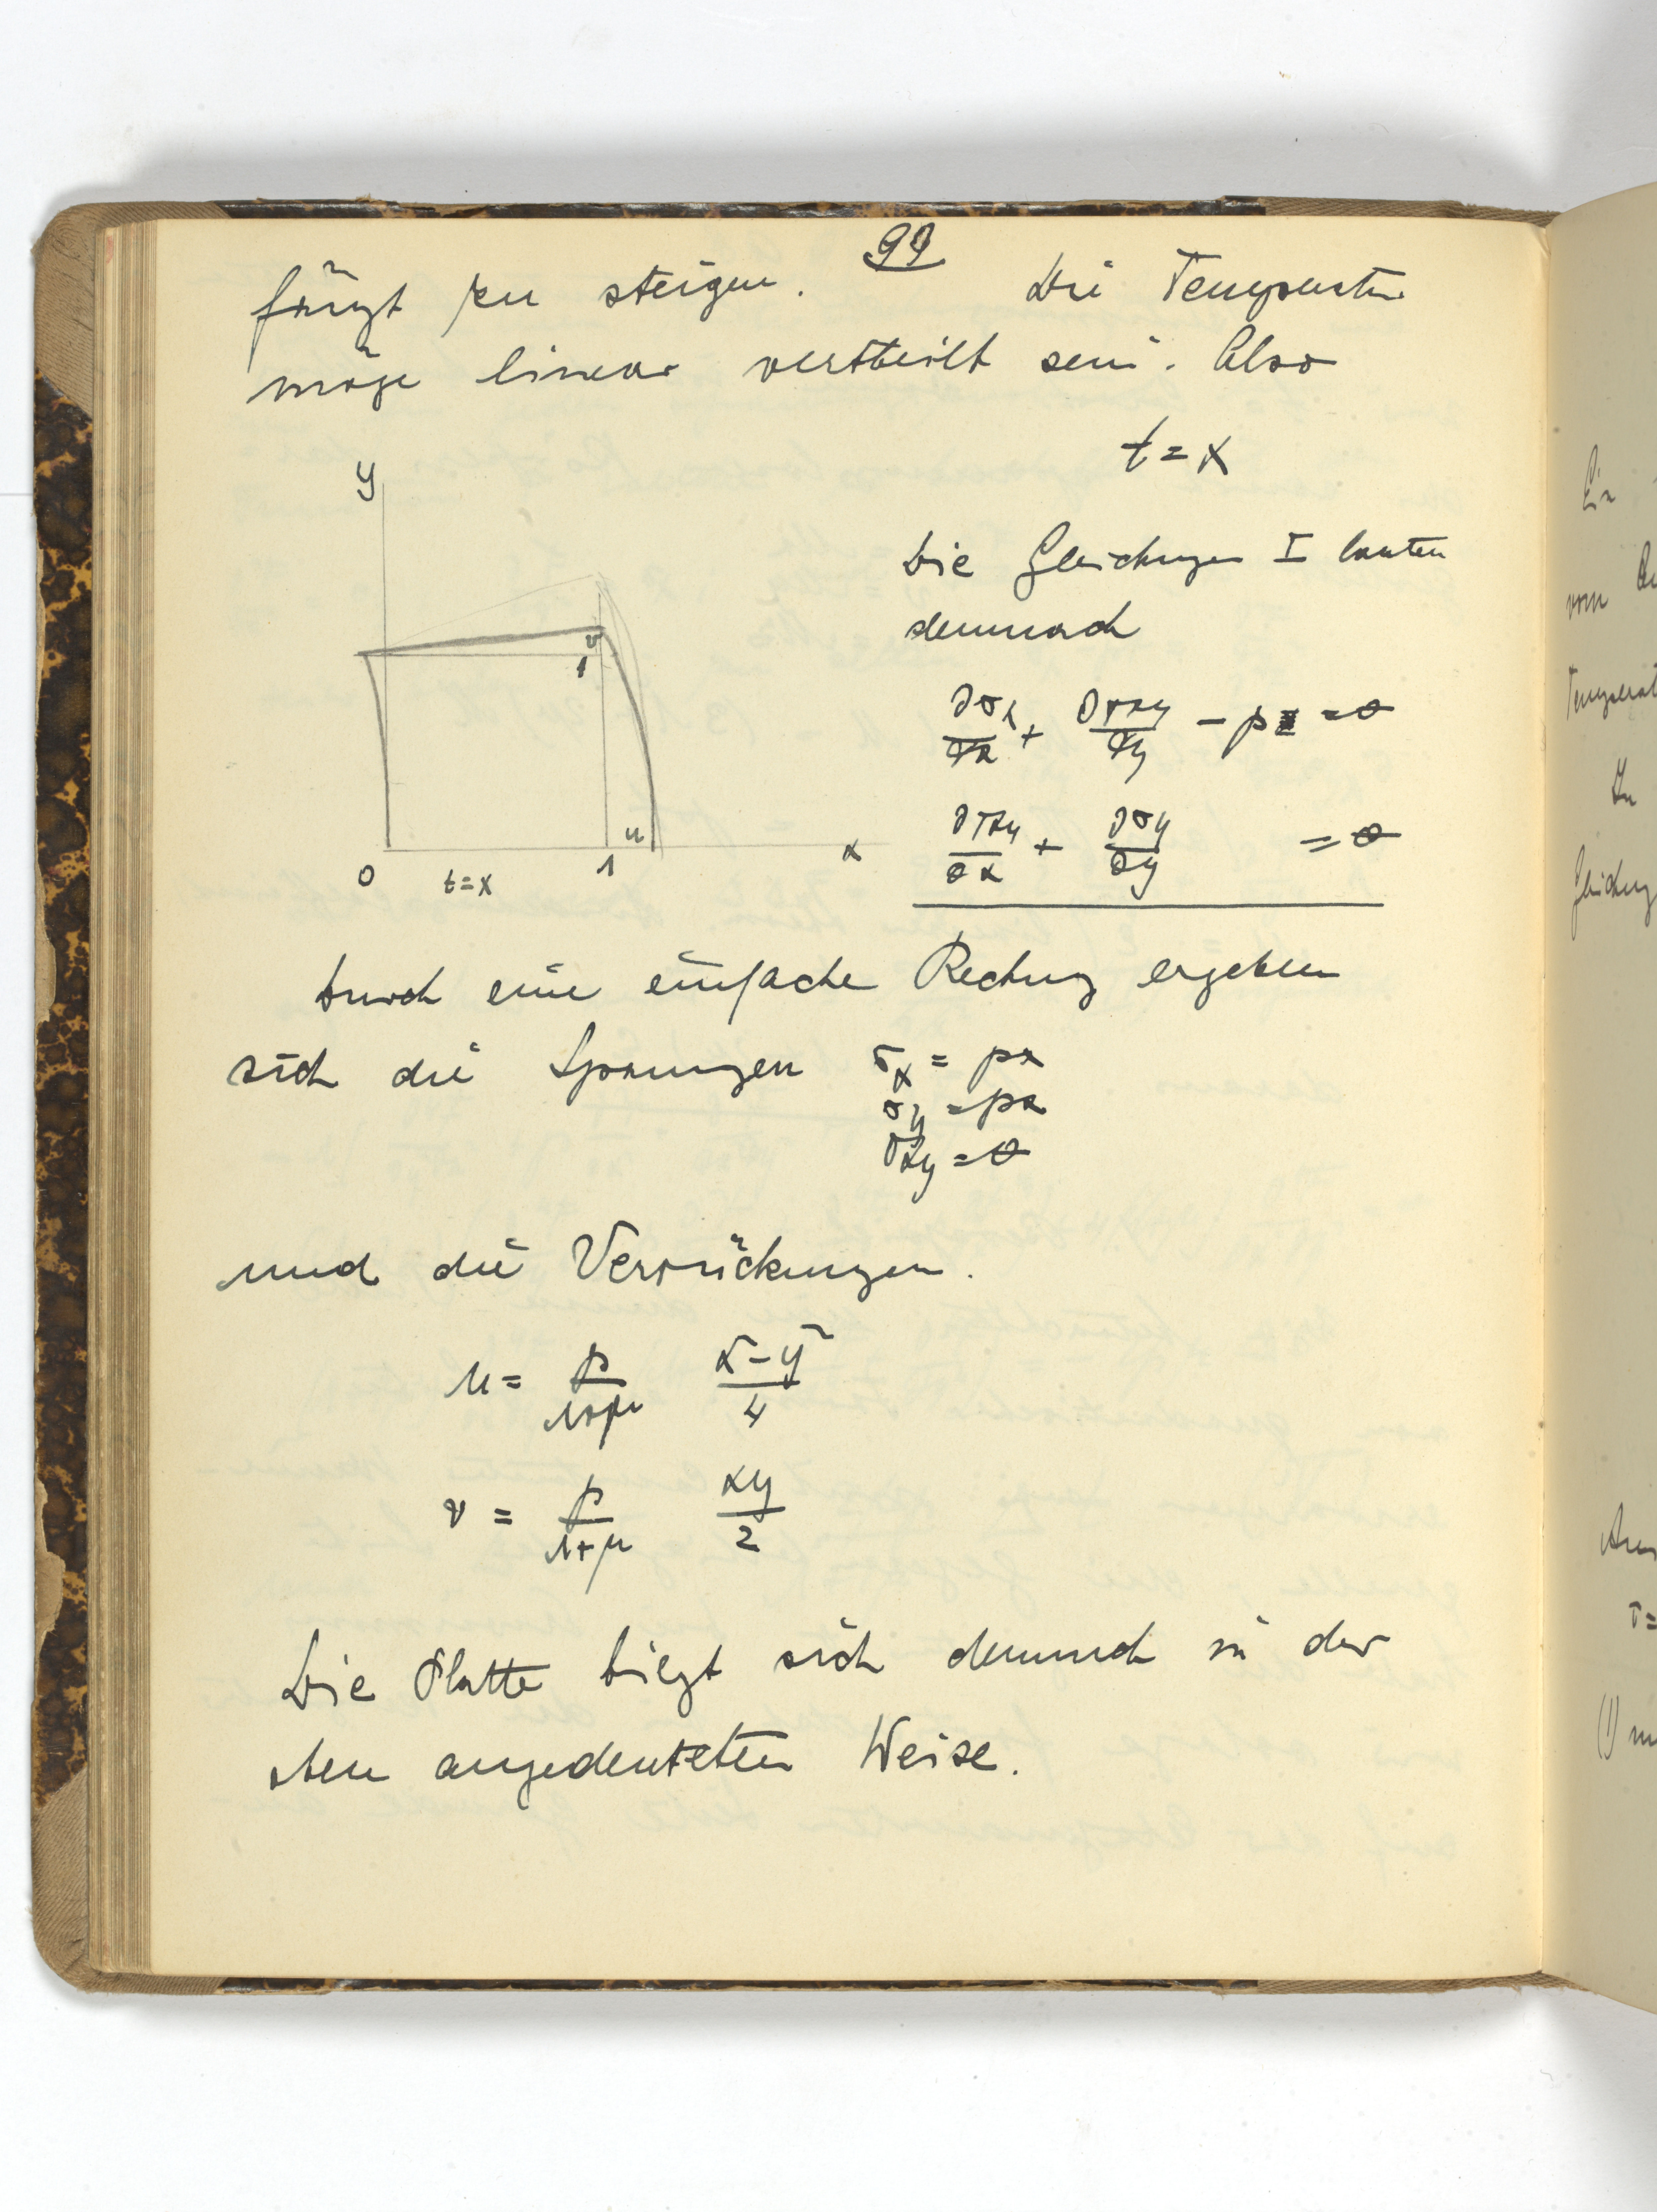 99
fängt zu steigen. Die Temperatur
möge linear verteilt sein. Also
t = x
y
Die Gleichungen I lauten
demnach
v
1
∂σx/∂x + ∂τxy/∂y − p = 0
u
x
∂τxy/∂x + ∂σy/∂y = 0
0 t=x 1
Durch eine einfache Rechnung ergeben
sich die Spannungen σx = px
σy = px
τxy = 0
und die Verrückungen.
u = p/(1+μ) (x²−y²)/4
v = p/(1+μ) xy/2
Die Platte biegt sich demnach in der
oben angedeuteten Weise.
Ein
vom
Temperat
In
Gleichung
τ=
(1)